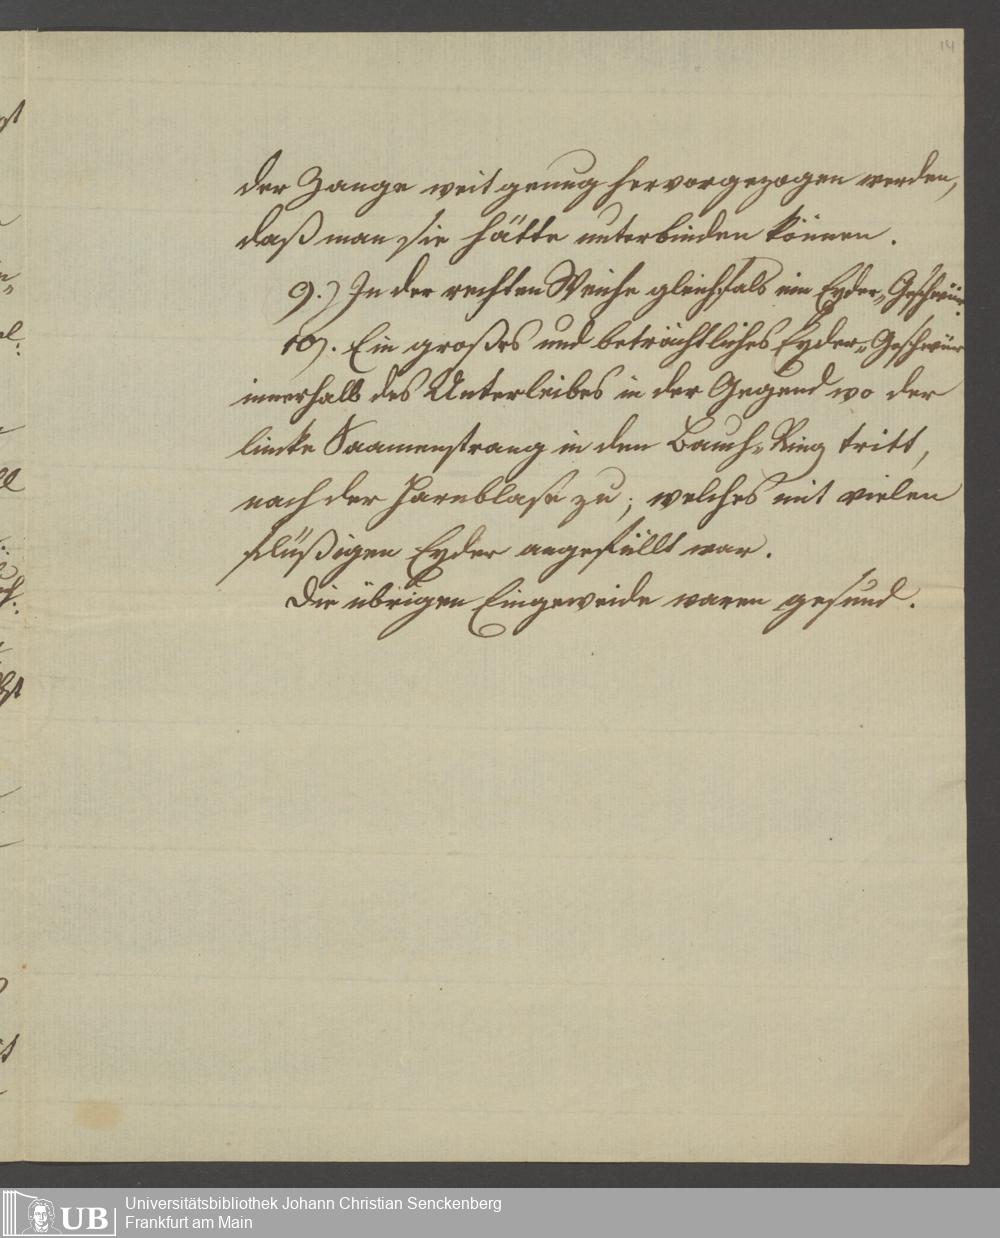 14
der Zange weit genug hervorgezogen werden,
daß man sie hätte unterbinden können.
9.) In der rechten Weiche gleichfals ein Eyder-Geschwür.
10). Ein großes und beträchtliches Eyder-Geschwür
innerhalb des Unterleibes in der Gegend wo der
lincke Saamenstrang in den Bauch-Ring tritt,
nach der Harnblase zu; welches mit vielen
flüßigen Eyder angefüllt war.
Die übrigen Eingeweide waren gesund.
UB
Universitätsbibliothek Johann Christian Senckenberg
Frankfurt am Main